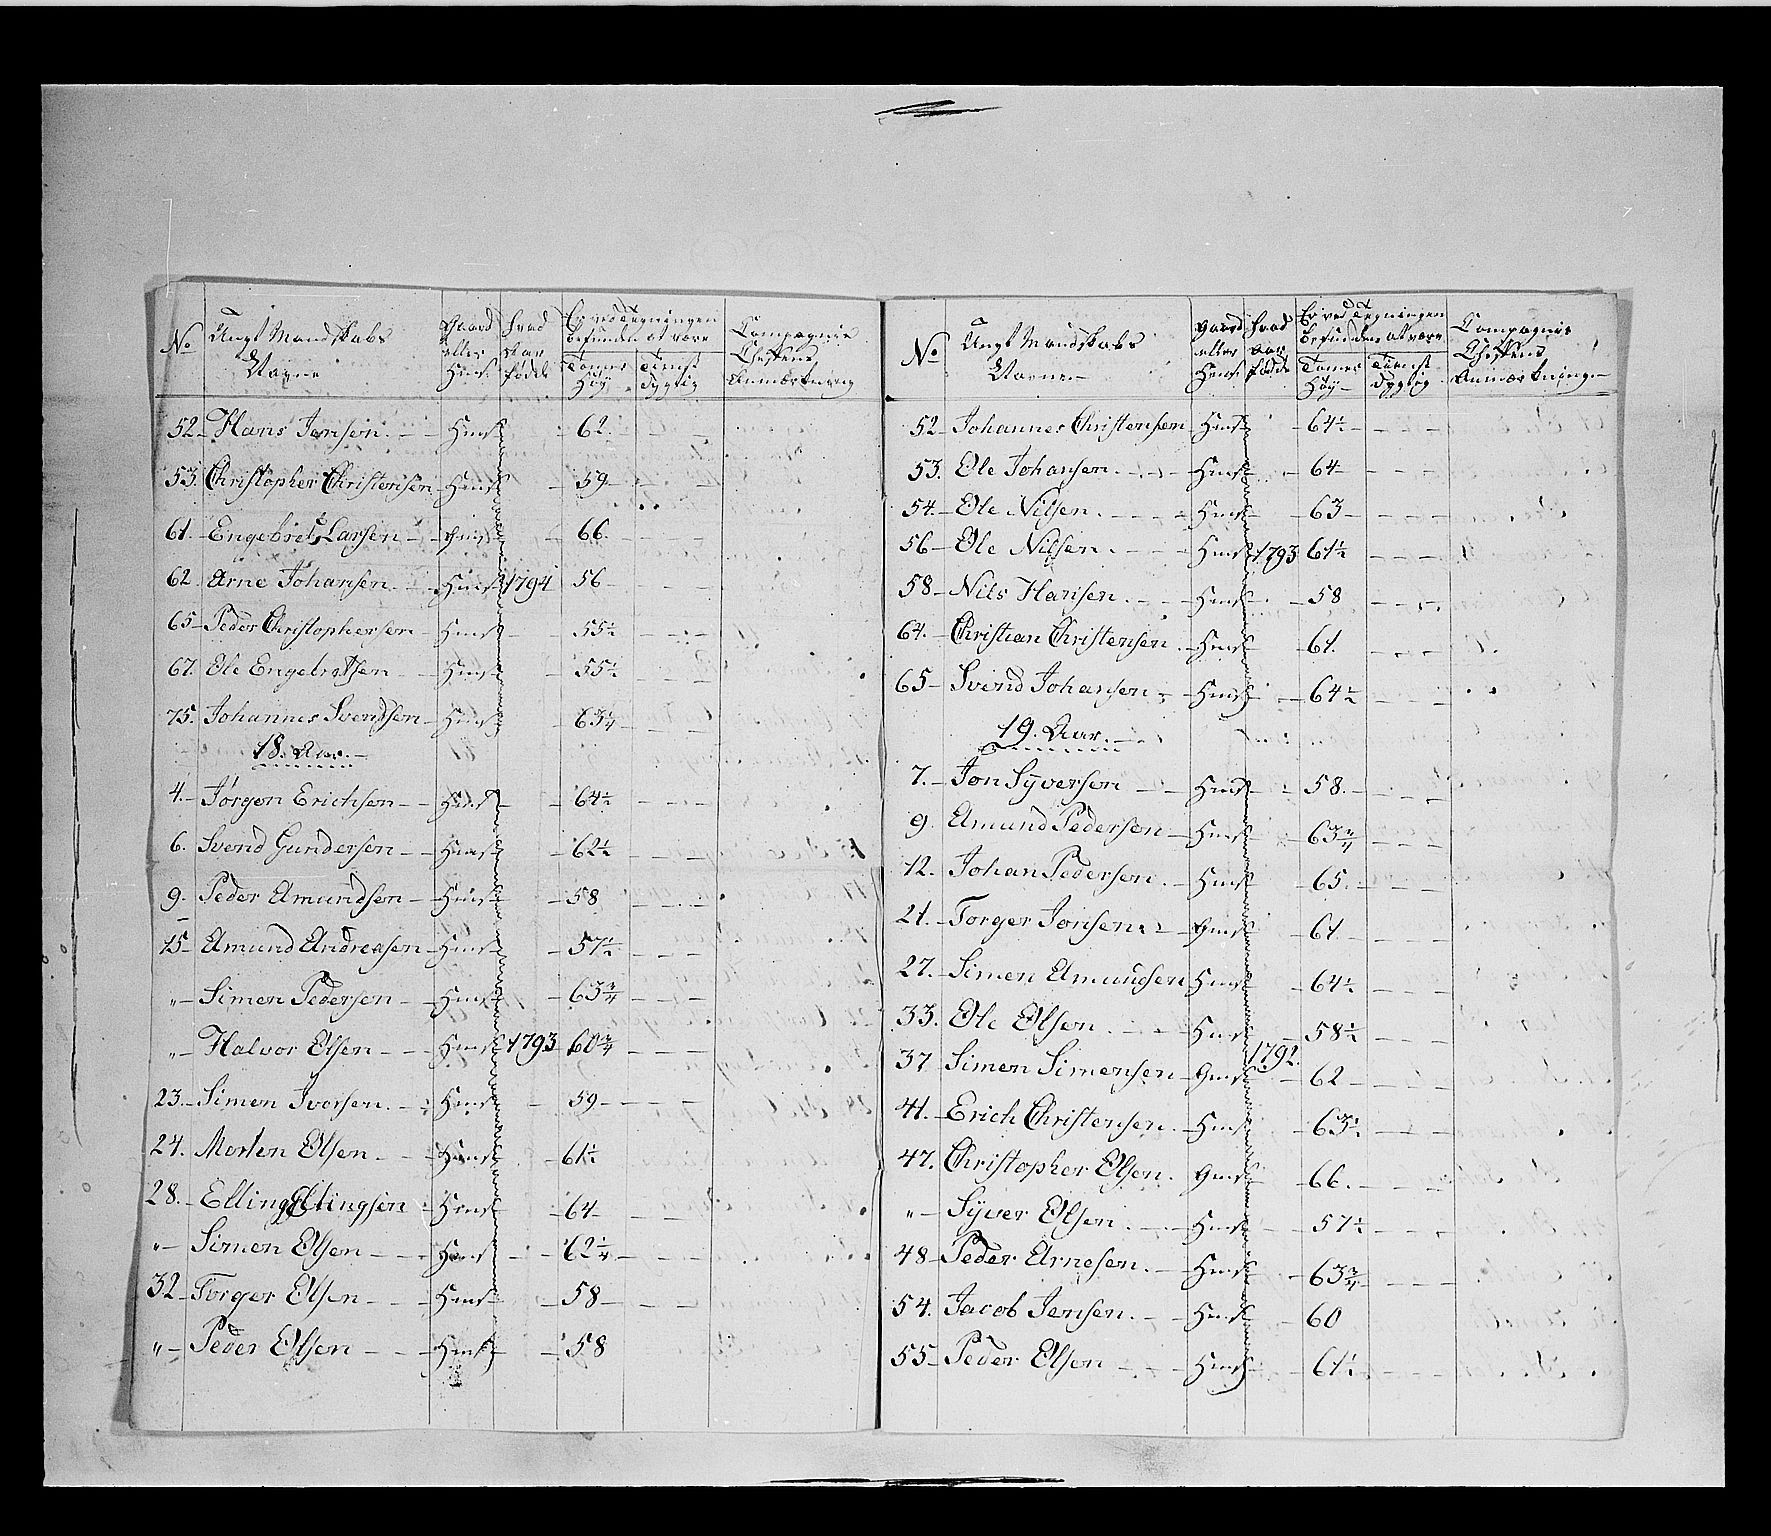 No Ungt Mandskabs Navne Gaard eller Huus hvad Aar fødde Er ved Tegningen befunden at være Tomer Høy Tienst dygtig Compagnie Chefens Anmærkning
52 Hans Jensen Huus 62
53 Christopher Christensen Huus 59
61 Engebret Larsen Huus 66
62 Arne Johansen Huus 1794 56
65 Peder Christophersen Huus 55½
67 Ole Engebretsen Huus 55½
75 Johannes Svendsen Huus 63¼
18 Aar
4 Jørgen Erichsen Huus 64½
6 Svend Gundersen Huus 62½
9 Peder Amundsen Huus 58
15 Amund Andreasen Huus 57½
" Simen Pedersen Huus 63¾
" Halvor Olsen Huus 1793 60¾
23 Simen Iversen Huus 59
24 Morten Olsen Huus 61½
28 Elling Ellingsen Huus 64
" Simen Olsen Huus 62¼
32 Torger Olsen Huus 58
" Peder Olsen Huus 58
No Ungt Mandskabs Navne Gaard eller Huus hvad Aar fødde Er ved Tegningen befunden at være Tomer Høy Tienst dygtig Compagnie Chefens Anmærkning
52 Johannes Christensen Huus 64½
53 Ole Johansen Huus 64
54 Ole Nilsen Huus 63
56 Ole Nilsen Huus 1793 61½
58 Nils Hansen Huus 58
64 Christian Christensen Huus 61
65 Svend Johansen Huus 64½
19 Aar
7 Jon Syversen Huus 58
9 Amund Pedersen Huus 63¾
12 Johan Pedersen Huus 65
21 Torger Jonsen Huus 61
27 Simen Amundsen Huus 64½
33 Ole Olsen Huus 58½
37 Simen Simensen Huus 1792 62
41 Erich Christensen Huus 63½
47 Christopher Olsen Huus 66
" Syver Olsen Huus 57½
48 Peder Arnesen Huus 63¾
54 Jacob Jensen Huus 60
55 Peder Olsen Huus 61½